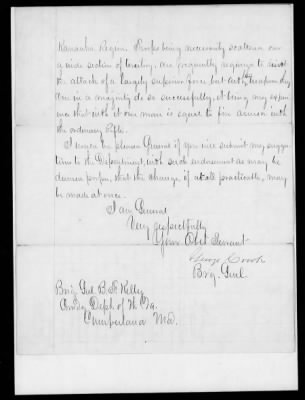 Kanawha Region. Troops being necessarily scattered over
a wide section of country, are frequently required to resist
the attack of a largely superior force but with this weapon they
can in a majority do so successfully, it being my experi
ence that with it one man is equal to five armed with
the ordinary Rifle.
I would be pleased General if you will submit my sugges
tions to the Department, with such endorsement as may be
deemed proper, that the change if at all practicable, may
be made at once.
I am General
Very respectfully
Your Obdt Servant
George Crook
Brig. Genl
Brig Genl B. F. Kelley
Comdg Dept of W. Va.
Cumberland Md.